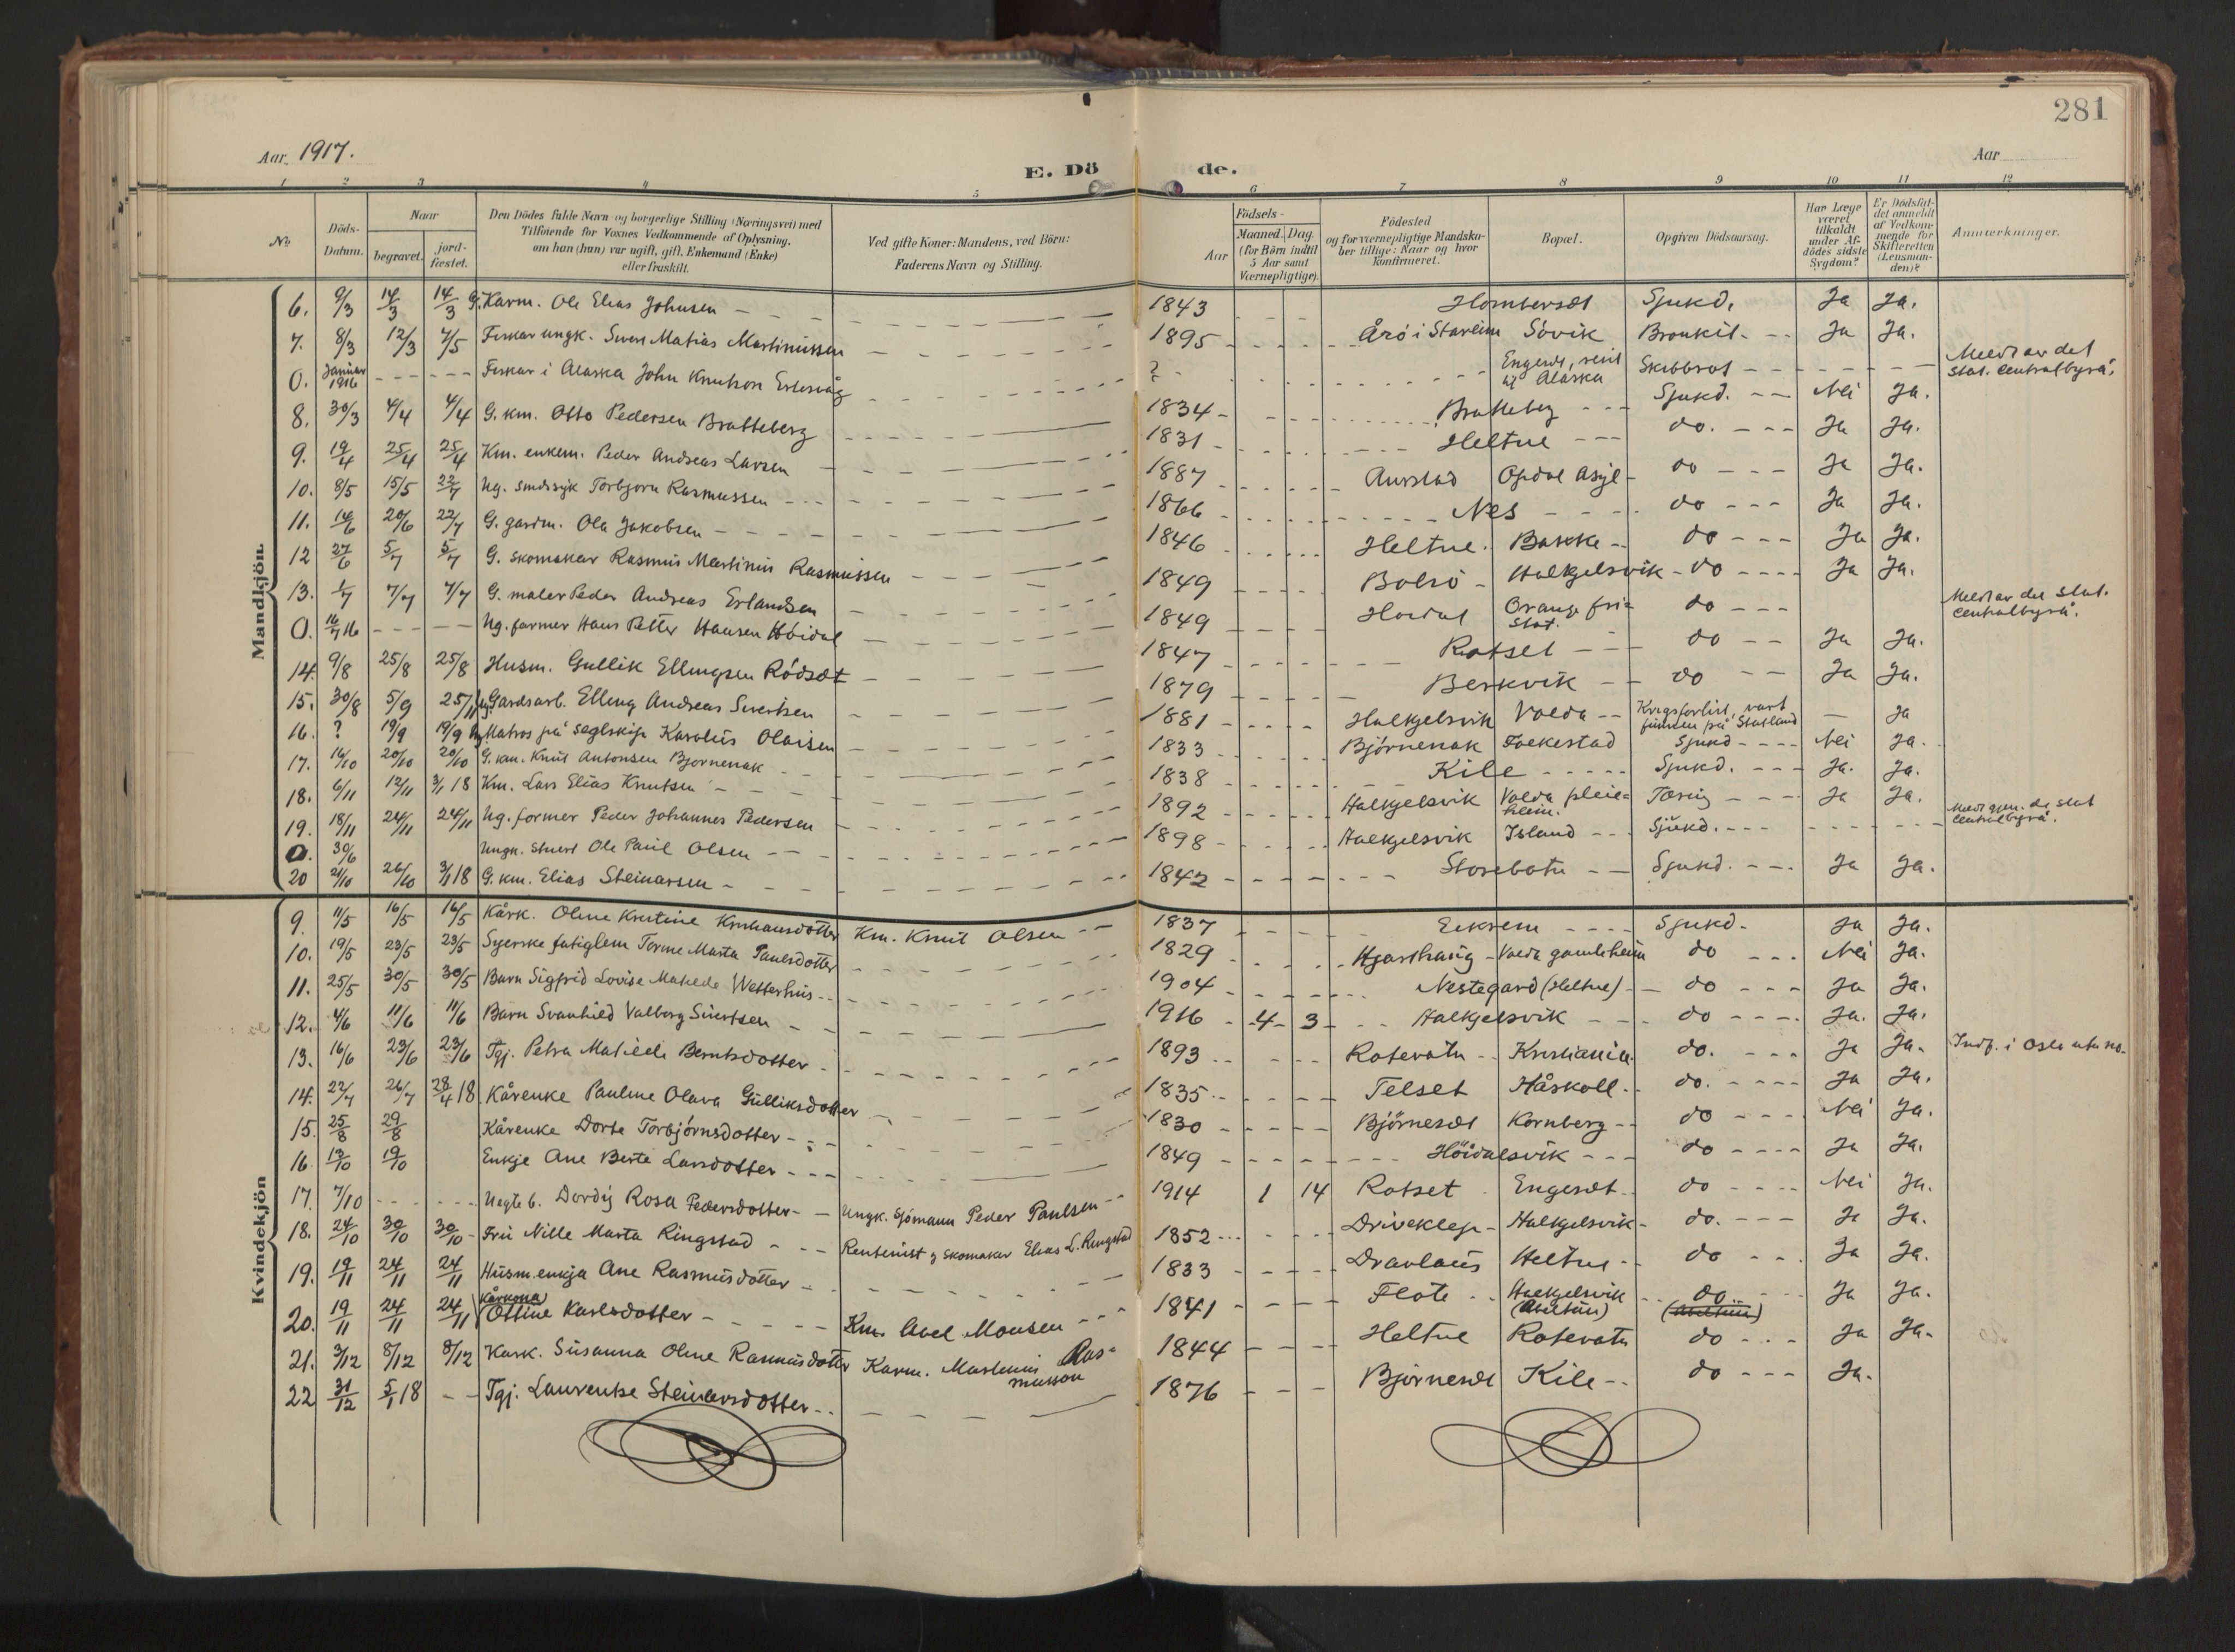 281
Aar 1917.
E. Dö de.
Aar
1 2 3 4 5 6 7 8 9 10 11 12
No.
Döds-Datum.
Naar
begravet.
jordfæstet.
Den Dödes fulde Navn og borgerlige Stilling (Næringsvei) med
Tilföiende for Voxnes Vedkommende af Oplysning,
om han (hun) var ugift, gift, Enkemand (Enke)
eller fraskilt.
Ved gifte Koner: Mandens, ved Börn:
Faderens Navn og Stilling.
Födsels-
Aar
Maaned. Dag.
(for Börn indtil
5 Aar samt
Værnepligtige).
Födested
og for værnepligtige Mandskaber tillige: Naar og hvor
konfirmeret.
Bopæl.
Opgiven Dödsaarsag.
Har Læge
været
tilkaldt
under Afdödes sidste
Sygdom?
Er Dödsfaldet anmeldt
af Vedkommende for
Skifteretten
(Lensmanden)?
Anmærkninger.
Mandkjön.
6. 9/3 14/3 14/3 G. Karm. Ole Elias Johnsen 1843 Homberset Sjukd. Ja Ja.
7. 8/3 12/3 7/5 Fiskar ungk. Sivert Matias Martinussen 1895 Årö i Stareim Sövik Bronkit. Ja Ja.
0. Januar 1916 Fiskar i Alaska John Knutson Ervesvåg ? Engeset, reist til Alaska Skibbrot Meldt av det stat. centralbyrå.
8. 30/3 4/4 4/4 G. km. Otto Pedersen Bratteberg 1834 Bratteberg Sjukd. Nei Ja.
9. 19/4 25/4 25/4 Km. enkem. Peder Andreas Larsen 1831 Heltne do. Ja Ja.
10. 8/5 15/5 22/7 Ug. sindssyk Torbjørn Rasmussen 1887 Aurstad Opdal Asyl do Ja Ja.
11. 14/6 20/6 22/7 G. gardm. Ola Jakobsen 1866 Nes do Ja Ja.
12 27/6 5/7 5/7 G. skomakar Rasmus Martinus Rasmussen 1846 Heltne. Bakke do Ja Ja.
13. 1/7 7/7 7/7 G. maler Peder Andreas Erlandsen 1849 Bolsö Halkjelsvik do Ja Ja.
0. 16/7 16 Ug. farmer Hans Petter Hansen Höidal 1849 Hoidal Orange fristat. do Meldt av det stat. centralbyrå.
14. 9/8 25/8 25/8 Husm. Gullik Ellingsen Rödset 1847 Rotset do Ja Ja.
15. 30/8 5/9 25/11 Ug. Gardsarb. Elling Andreas Sivertsen 1879 Berkvik do Ja Ja.
16. ? 19/9 19/9 Ug. Matros på seglskip Karolus Olaisen 1881 Halkjelsvik Volda Krigsforlist, vart funnen på Statland Ja
17. 16/10 20/10 20/10 G. km. Knut Antonsen Bjørnenak 1833 Björnenak Folkestad Sjukd Nei Ja.
18. 6/11 12/11 3/1 18 Km. Lars Elias Knutsen 1838 Kile Sjukd. Ja. Ja.
19. 18/11 24/11 24/11 Ug. farmer Peder Johannes Pedersen 1892 Halkjelsvik Volda pleieheim. Tæring Ja Ja.
0. 30/6 Ungk. Stuert Ole Paul Olsen 1898 Halkjelsvik Island Sjukd. Meldt gjen. de stat centralbyrå.
20 21/10 26/10 3/1 18 G. km. Elias Steinarsen 1842 Storebotn Sjukd. Ja Ja.
Kvindekjön
9. 11/5 16/5 16/5 Kårk. Oline Kristine Kristiansdotter Km. Knut Olsen 1837 Eikrem Sjukd. Ja Ja.
10. 19/5 23/5 23/5 Syerske fatiglem Marta Paulsdotter 1829 Hjorthaug Volda gamleheim do Nei Ja.
11. 25/5 30/5 30/5 Barn Sigfrid Lovise Matilde Wetterhus 1904 Nestegard (Heltne) do Ja Ja.
12. 4/6 11/6 11/6 Barn Svanhild Valborg Sivertsen 1916 4 3 Halkjelsvik do Ja. Ja.
13. 16/6 23/6 23/6 Tgj. Petra Matilde Berntsdotter 1893 Rotevatn Kristiania do. Ja Ja. Indf. i Oslo
14. 22/7 26/7 28/4 18 Kårenke Pauline Olava Gulliksdotter 1835 Telset Håskoll do. Ja Ja.
15. 25/8 29/8 Kårenke Dorte Torbjörnsdotter 1830 Björneset Kornberg do Nei Ja.
16. 13/10 19/10 Enkje Ane Berte Larsdotter 1849 Höidalsvik do Ja Ja.
17. 7/10 Uegte b. Dordij Rosa Pedersdotter Ungk. sjömann Peder Paulsen 1914 1 14 Rotset Engeset do Nei Ja.
18. 24/10 30/10 30/10 Fru Nille Marta Ringstad Rentenist & skomakar Elias L. Ringstad 1852 Driveklep Halkjelsvik do. Ja Ja.
19. 19/11 24/11 24/11 Husm.enkja Ane Rasmusdotter 1833 Dravlaus Heltne do Ja Ja.
20. 19/11 24/11 24/11 Kårkona Ottine Karlsdotter Km. Abel Monsen 1841 Flöte Halkjelsvik (Abeltun) do (Abeltun) Ja Ja.
21. 3/12 8/12 8/12 Kark. Susanna Oline Rasmusdotter Karm. Martinus Rasmusson 1844 Heltne Rotevatn do Ja Ja.
22 31/12 5/1 18 Tgj. Laurentse Steinarsdotter 1876 Björneset Kile do Ja.